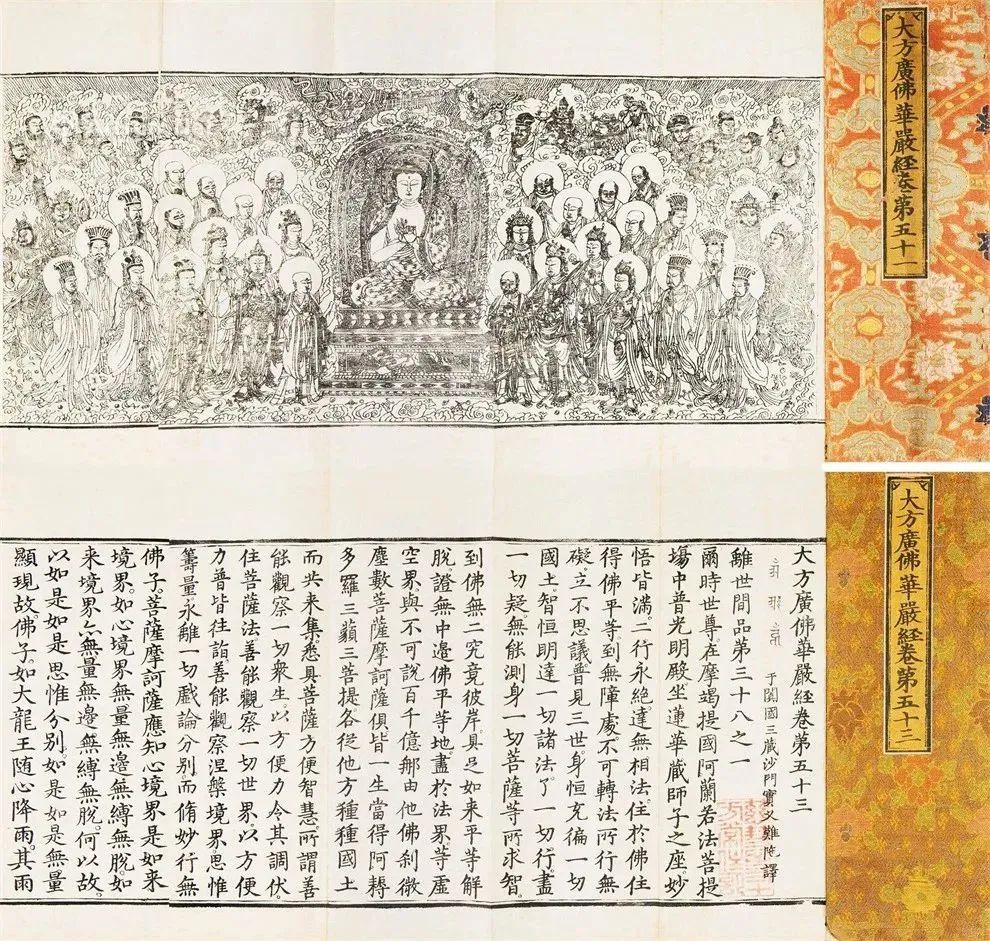 大方廣佛華嚴經卷第五十一
大方廣佛華嚴經卷第五十三
大方廣佛華嚴經卷第五十三
于闐國三藏沙門實叉難陀譯
離世間品第三十八之一
爾時世尊。在摩竭提國阿蘭若法菩提
場中普光明殿。坐蓮華藏師子之座。妙
悟皆滿。二行永絕。達無相法。住於佛住。
得佛平等。到無障處。不可轉法。所行無
礙。立不思議。普見三世。身恒充徧一切
國土。智恒明達一切諸法。了一切行。盡
一切疑。無能測身。一切菩薩等所求智。
到佛無二究竟彼岸。具足如來平等解
脫。證無中邊佛平等地。盡於法界。等虛
空界。與不可說百千億那由他佛刹微
塵數菩薩摩訶薩俱。皆一生當得阿耨
多羅三藐三菩提。各從他方種種國土
而共來集。悉具菩薩方便智慧。所謂善
能觀察一切衆生。以方便力令其調伏。
住菩薩法。善能觀察一切世界。以方便
力普皆往詣。善能觀察涅槃境界。思惟
籌量。永離一切戲論分別。而脩妙行無
佛子。菩薩摩訶薩應知心境界是如來
境界。如心境界無量無邊無縛無脫。如
來境界亦無量無邊無縛無脫。何以故。
以如是如是思惟分別。如是如是無量
顯現故。佛子。如大龍王隨心降雨。其雨